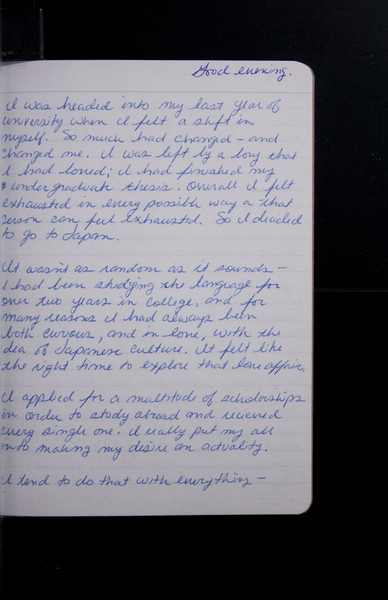 Good evening.
I was headed into my last year of
university when I felt a shift in
myself. So much had changed - and
changed me. I was left by a boy that
I had loved; I had finished my
undergraduate thesis. Overall I felt
exhausted in every possible way a that
person can feel exhausted. So I decided
to go to Japan.
It wasn't as random as it sounds -
I had been studying the language for
over two years in college, and for
many reasons I had always been
both curious, and in love, with the
idea of Japanese culture. It felt like
the right time to explore that love affair.
I applied for a multitude of scholarships
in order to study abroad and received
every single one. I really put my all
into making my desire an actuality.
I tend to do that with everything -